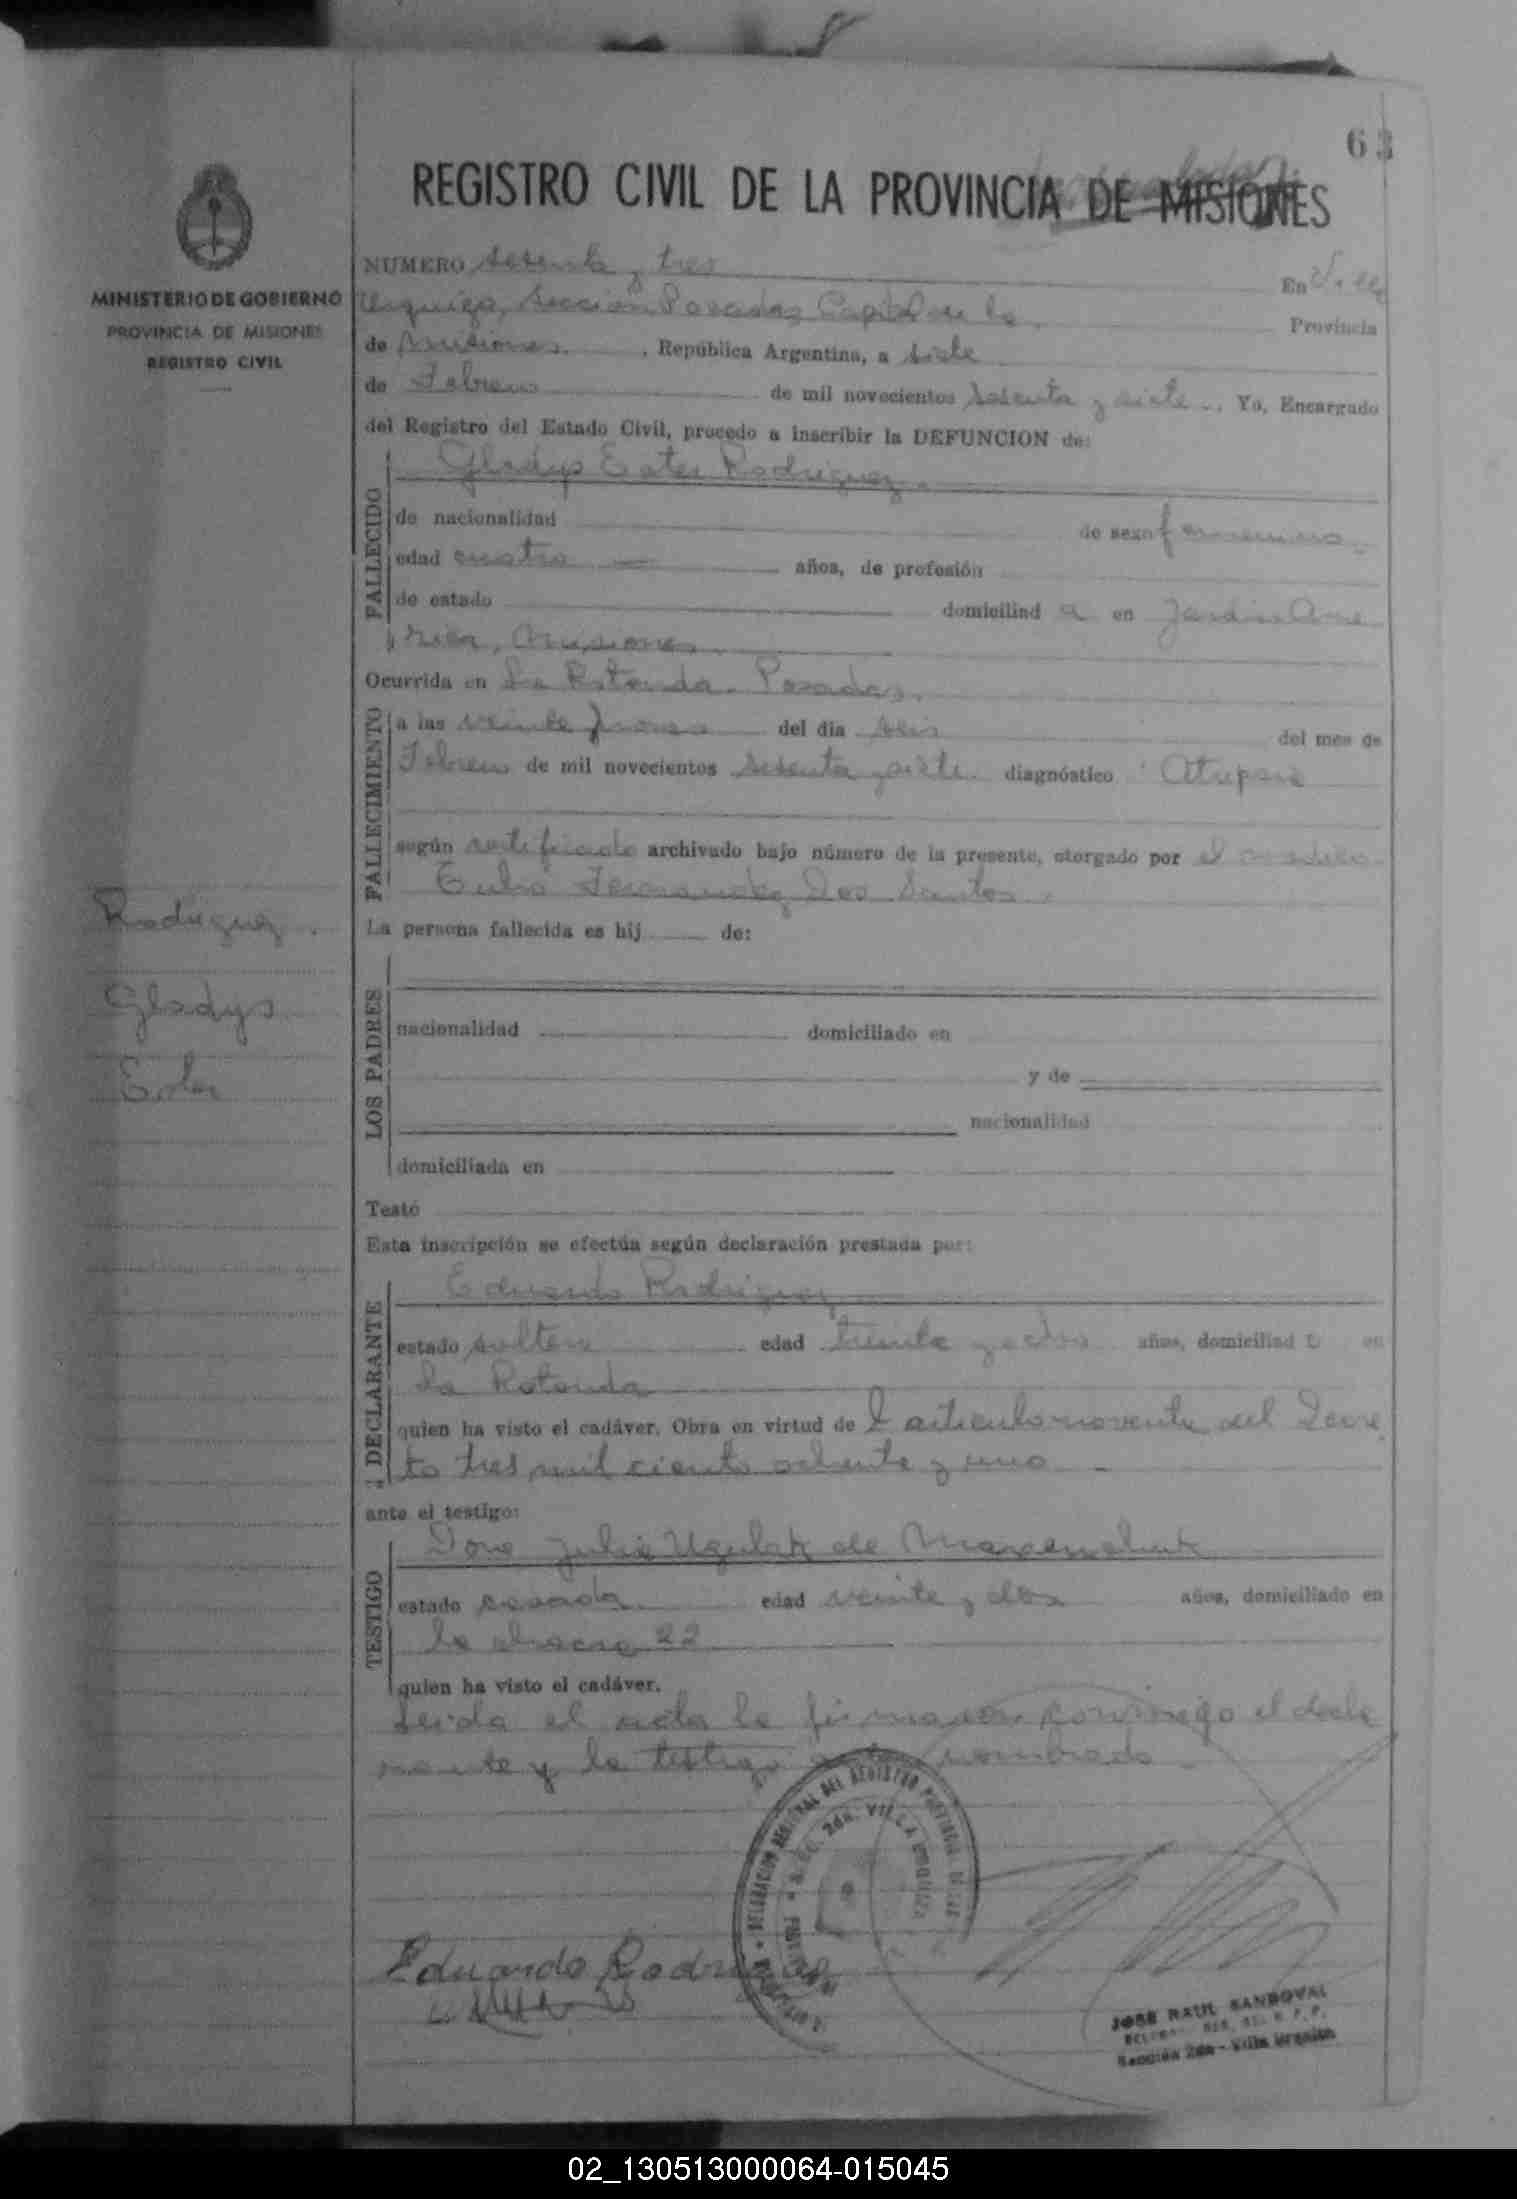 63
REGISTRO CIVIL DE LA PROVINCIA DE MISIONES
MINISTERIO DE GOBIERNO
PROVINCIA DE MISIONES
REGISTRO CIVIL
NUMERO sesenta y tres En Villa
Urquiza, Sección Posadas Capital de la Provincia
de Misiones, República Argentina, a siete
de Febrero de mil novecientos sesenta y siete. Yo, Encargado
del Registro del Estado Civil, procedo a inscribir la DEFUNCION de:
Gladys Ester Rodriguez.
FALLECIDO
de nacionalidad de sexo femenino.
edad cuatro años, de profesión
de estado domiciliad a en Jardin Amé
rica, Misiones.
Ocurrida en La Rotonda. Posadas.
FALLECIMIENTO
a las veinte horas del dia seis del mes de
Febrero de mil novecientos sesenta y siete diagnóstico
según certificado archivado bajo número de la presente, otorgado por el médico
Fernandez Dos Santos.
Rodriguez.
Gladys
Ester
La persona fallecida es hij de:
LOS PADRES
nacionalidad domiciliado en
y de
nacionalidad
domiciliada en
Testó
Esta inscripción se efectúa según declaración prestada por:
Eduardo Rodriguez
DECLARANTE
estado soltero edad treinta y ocho años, domiciliad o en
La Rotonda
quien ha visto el cadáver. Obra en virtud de l articulo noventa del Decre
to tres mil ciento ochenta y uno
ante el testigo:
Doña Julia de
TESTIGO
estado casada edad veinte y dos años, domiciliado en
la chacra 22
quien ha visto el cadáver.
Leida el acta la firmaron conmigo el decla
rante y la testigo nombrada.
SEC. 2da. VILLA URQUIZA
Eduardo Rodriguez
JOSE RAUL SANDOVAL
Sección 2da - Villa Urquiza
02_130513000064-015045